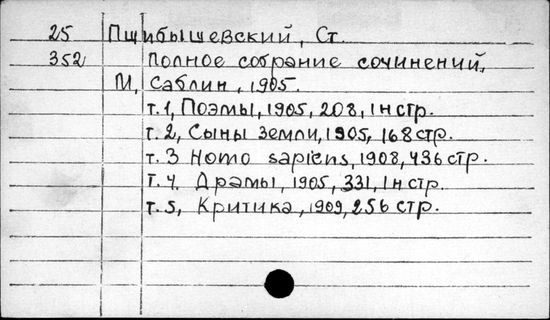 25 Пшибышевский, Ст.
352 Полное собрание сочинений.
М, Саблин, 1905.
т. 1, Поэмы, 1905, 208, 1 н стр.
т. 2, Сыны Земли, 1905, 168 стр.
т. 3 Homo sapiens, 1908, 436 стр.
т. 4. Драмы, 1905, 331, 1 н стр.
т. 5, Критика, 1909, 256 стр.